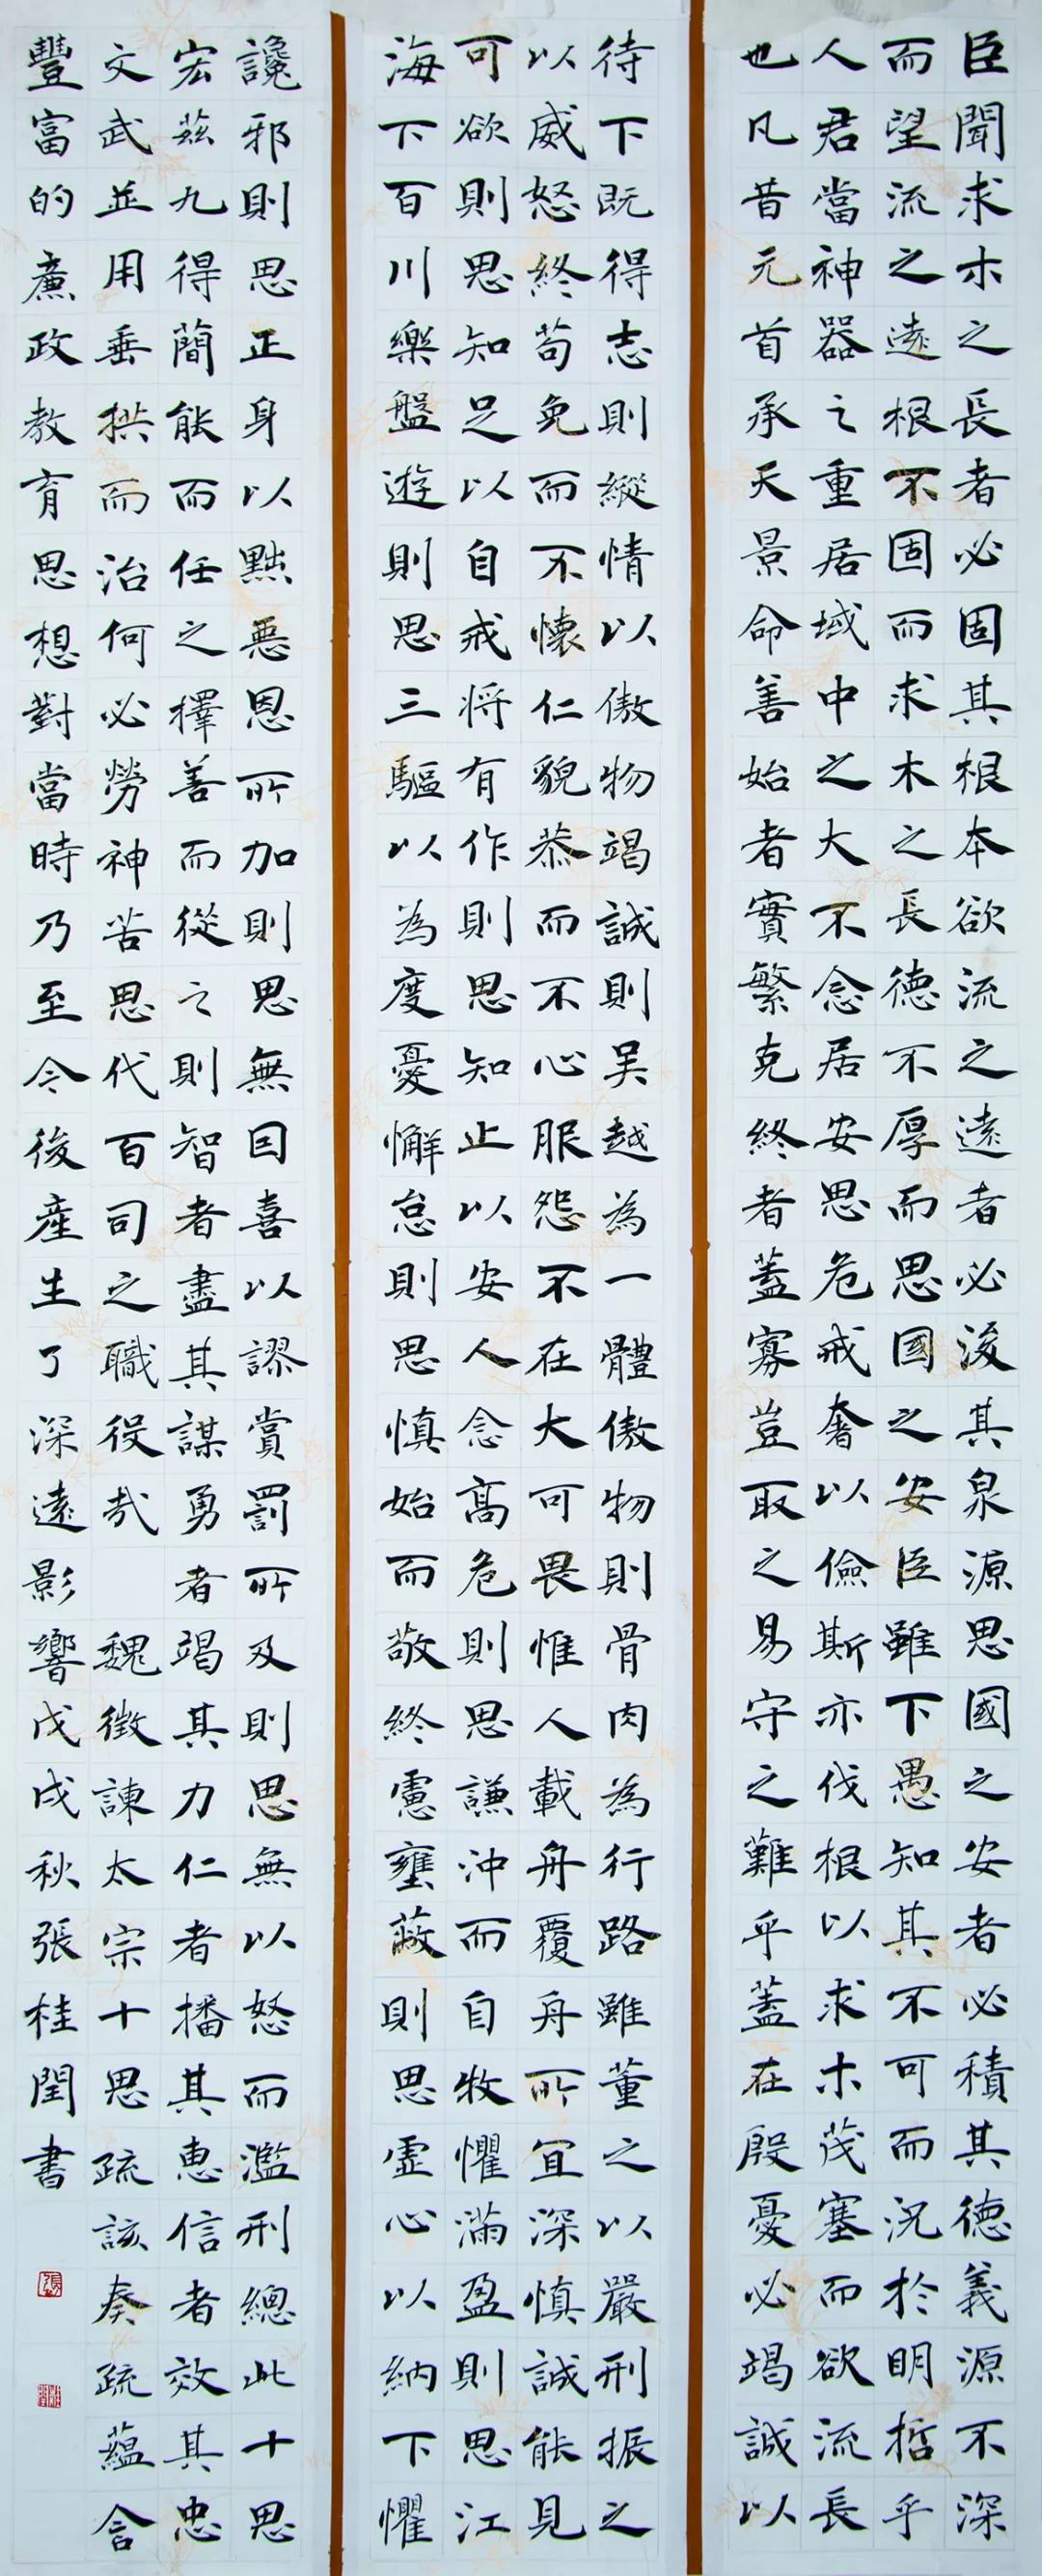 臣聞求木之長者必固其根本欲流之遠者必浚其泉源思國之安者必積其德義源不深
而望流之遠根不固而求木之長德不厚而思國之安臣雖下愚知其不可而況於明哲乎
人君當神器之重居域中之大不念居安思危戒奢以儉斯亦伐根以求木茂塞而欲流長
也凡昔元首承天景命善始者實繁克終者蓋寡豈取之易守之難乎蓋在殷憂必竭誠以
待下既得志則縱情以傲物竭誠則吳越為一體傲物則骨肉為行路雖董之以嚴刑振之
以威怒終苟免而不懷仁貌恭而不心服怨不在大可畏惟人載舟覆舟所宜深慎誠能見
可欲則思知足以自戒將有作則思知止以安人念高危則思謙沖而自牧懼滿盈則思江
海下百川樂盤遊則思三驅以為度憂懈怠則思慎始而敬終慮壅蔽則思虛心以納下懼
讒邪則思正身以黜惡恩所加則思無因喜以謬賞罰所及則思無以怒而濫刑總此十思
宏茲九得簡能而任之擇善而從之則智者盡其謀勇者竭其力仁者播其惠信者效其忠
文武並用垂拱而治何必勞神苦思代百司之職役哉 魏徵諫太宗十思疏該奏疏蘊含
豐富的廉政教育思想對當時乃至今後產生了深遠影響戊戌秋張桂閏書